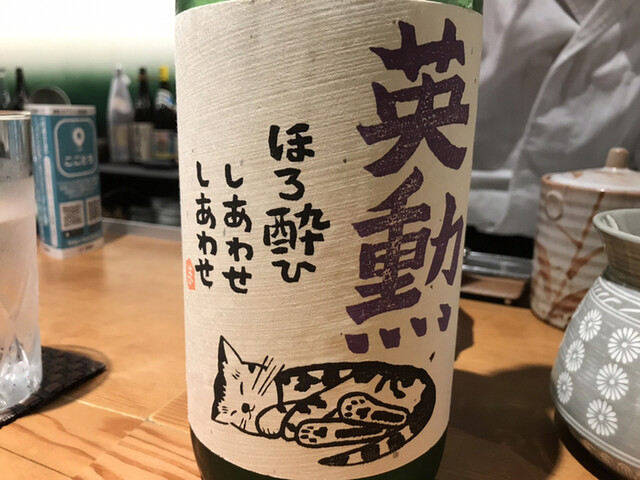 英勲
ほろ酔い
しあわせ
しあわせ
ここたち